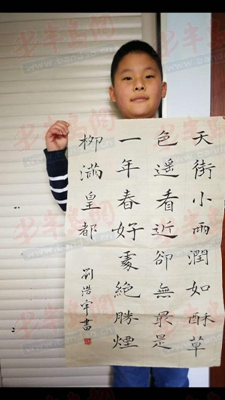 天街小雨潤如酥草
色遥看近卻無最是
一年春好處絕勝煙
柳滿皇都
劉浩宇書